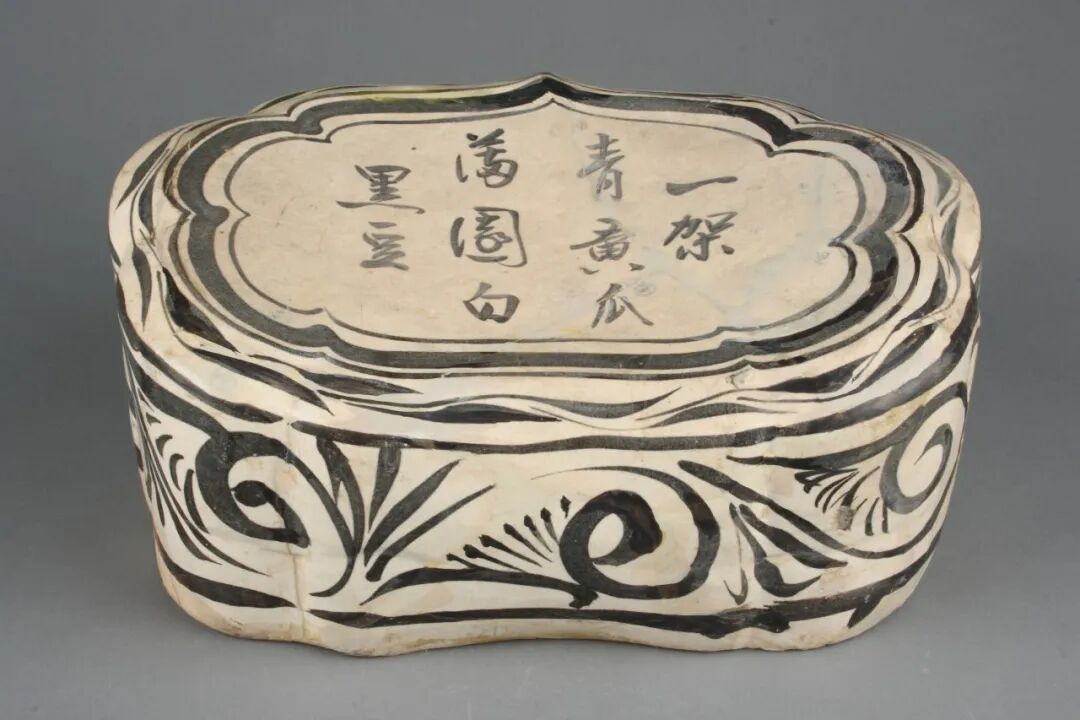 一架
青黄瓜
满园白
黑豆